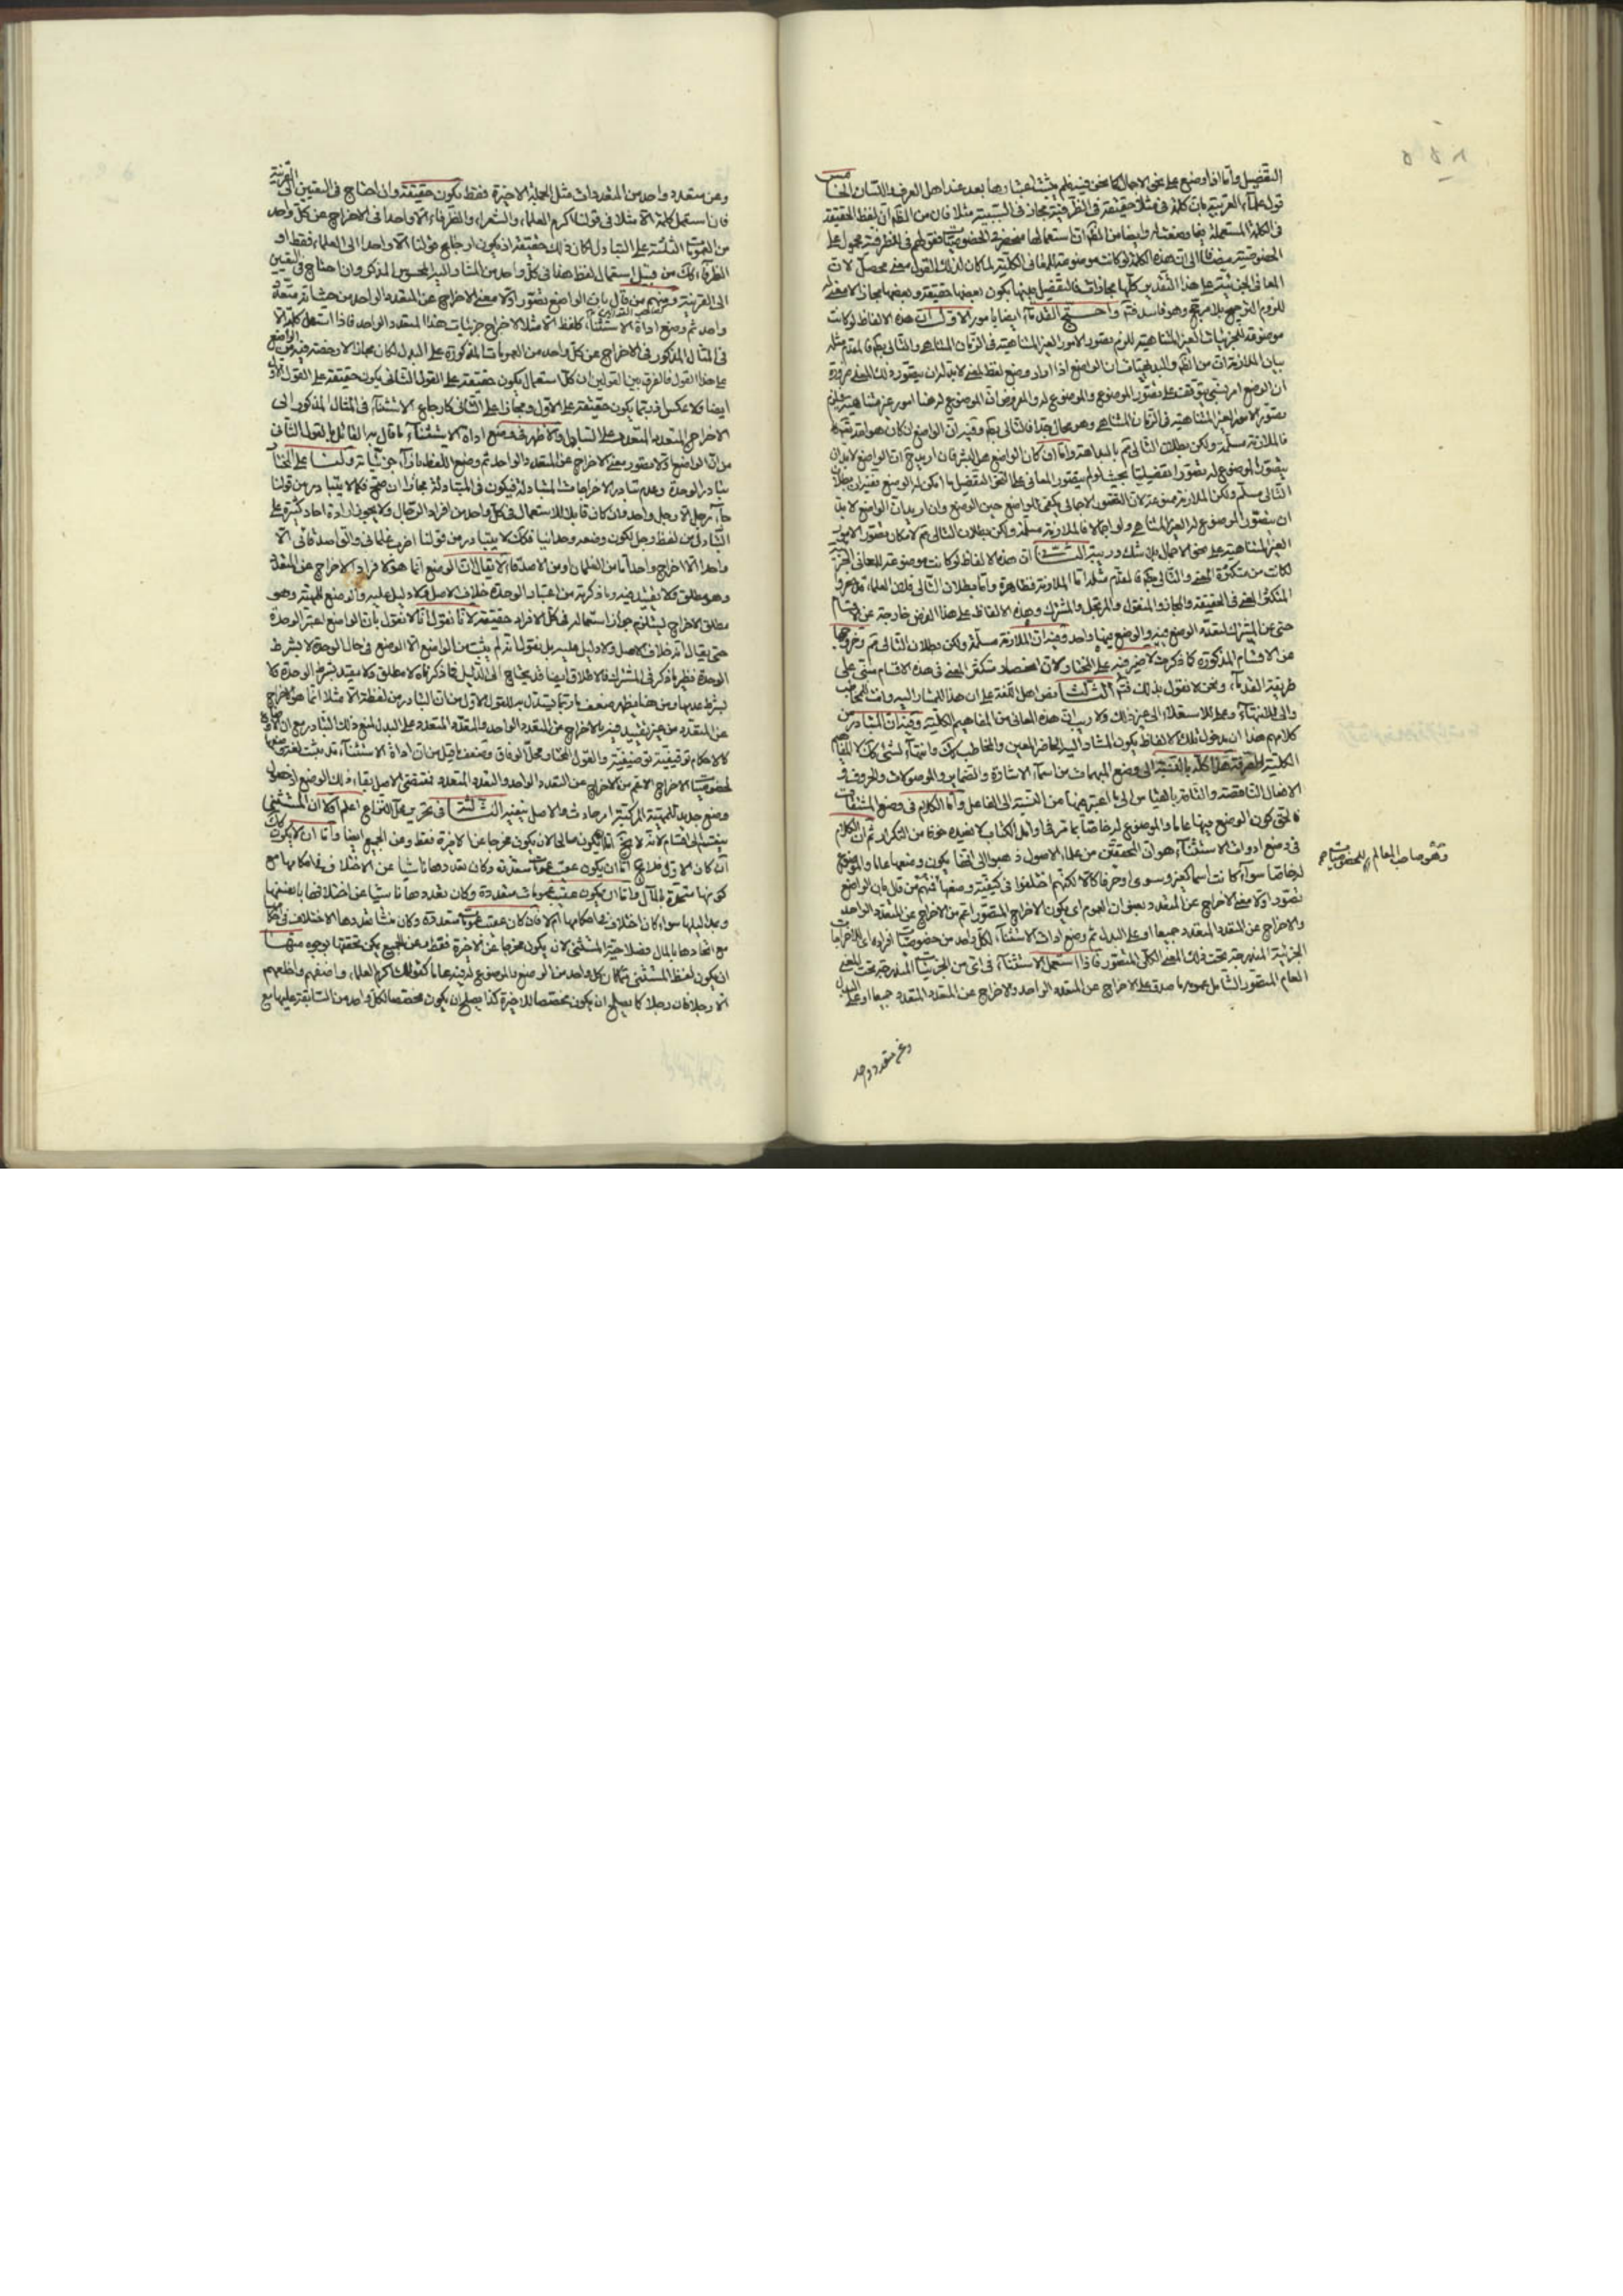 التفصيل وامّا اذا وضع على نحو الاجمال كما نحن فيه فلم يثبت اعتبارها بعد عند اهل العرف واللسان الخامس
قول علماء العربية بان كلمة في مثلا حقيقة في الظرفية مجاز في السببية مثلا فان من الظم ان لفظ الحقيقة
في الكلمة المستعملة فيما وضعت له وايضا من الظم ان استعمالها منحصر في الخصوصيات فقولهم في للظرفية محمول على
الخصوصية مضافا الى ان هذه الكلمة لو كانت موضوعة للمعاني الكلية لما كان لذلك القول معنى محصل لان
المعاني الجزئية على هذا التقدير كلها مجازات فالتفصيل بينها بكون بعضها حقيقة وبعضها مجازا لا معنى له
للزوم الترجيح بلا مرجح وهو فاسد فتم واحتج القدماء ايضا بامور الاول ان هذه الالفاظ لو كانت
موضوعة للجزئيات الغير المتناهية للزم تصور الامور الغير المتناهية في الزمان المتناهي والتالي بط فالمقدم مثله
بيان الملازمة ان من الظم والبديهيات ان الواضع اذا اراد وضع لفظ لمعنى لابد له ان يتصور ذلك المعنى ضرورة
ان الوضع امر نسبي يتوقف على تصور الموضوع والموضوع له والمفروض ان الموضوع له هنا امور غير متناهية فيلزم
تصور الامور الغير المتناهية في الزمان المتناهي وهو محال جدا فالتالي بط وفيه ان الواضع ان كان هو الله تعالى
فالملازمة مسلمة ولكن بطلان التالي تم بالبداهة وامّا ان كان الواضع هو البشر فان اريد ان الواضع لابد ان
يتصور الموضوع له تصورا تفصيليا بحيث لو لم يتصور المعاني على النحو التفصيل ما امكن له الوضع ففيه ان بطلان
التالي مسلم ولكن الملازمة ممنوعة لان التصور الاجمالي يكفي للواضع حين الوضع وان اريد ان الواضع لابد
ان يتصور الموضوع له الغير المتناهي ولو اجمالا فالملازمة مسلمة ولكن بطلان التالي تم لامكان تصور الامور
الغير المتناهية على نحو الاجمال بلا شك وريبة الثاني ان هذه الالفاظ لو كانت موضوعة للمعاني الجزئية
لكانت من متكثرة المعنى والتالي بط فالمقدم مثله امّا الملازمة فظاهرة وامّا بطلان التالي فلان العلماء قد حصروا
المتكثر المعنى في الحقيقة والمجاز والمنقول والمرتجل والمشترك وهذه الالفاظ على هذا الفرض خارجة عن الاقسام
حتى عن المشترك لتعدد الوضع فيه والوضع فيها واحد وفيه ان الملازمة مسلمة ولكن بطلان التالي تم وخروجها
عن الاقسام المذكورة كما ذكرت لا ضير فيه على المختار لان انحصار متكثر المعنى في هذه الاقسام مبني على
طريقة القدماء ونحن لا نقول بذلك فتم الثالث نص اهل اللغة على ان هذا للمشار اليه وانت للمخاطب
والى للانتهاء وعلى للاستعلاء الى غير ذلك ولا ريب ان هذه المعاني من المفاهيم الكلية وفيه ان المتبادر من
كلامهم هذا ان مدخول تلك الالفاظ يكون المشار اليه الحاضر المعين والمخاطب كذلك وانتهاء لشيء كذا لا المفاهيم
الكلية الصرفة هذا كله بالنسبة الى وضع المبهمات من اسماء الاشارة والضماير والموصولات والحروف و
الافعال الناقصة والتامة بالقياس الى ما اعتبر فيها من النسبة الى الفاعل وامّا الكلام في وضع المشتقات
فالحق كون الوضع فيها عاما والموضوع له خاصا بما مر في اوائل الكتاب لا نعيده خوفا من التكرار ثم ان الكلام
في وضع ادوات الاستثناء هو ان المحققين من علماء الاصول ذهبوا الى انها يكون وضعها عاما والموضوع
له خاصا سواء كانت اسما كغير وسوى او حرفا كالا لكنهم اختلفوا في كيفية وضعها فمنهم من قال بان الواضع
تصور اولا معنى الاخراج عن المتعدد بعنوان العموم اي يكون الاخراج المتصور اعم من الاخراج عن المتعدد الواحد
والاخراج عن المتعدد المتعدد جميعا او على البدل ثم وضع ادات الاستثناء لكل واحد من خصوصيات افراده اي للاخراجات
الجزئية المندرجة تحت ذلك المعنى الكلي المتصور فاذا استعمل الاستثناء في اي من الجزئيات المندرجة تحت المعنى
العام المتصور الشامل بعمومه ما صدق على الاخراج عن المتعدد الواحد والاخراج عن المتعدد المتعدد جميعا او على البدل
وهو صاحب المعالم
وعن متعدد واحد
وعن متعدد واحد من المتعددات مثل الجملة الاخيرة فقط يكون حقيقة وان احتاج في التعيين الى القرينة
فان استعمل كلمة الا مثلا في قولنا اكرم العلماء والشعراء والظرفاء الا واحدا في الاخراج عن كل واحد
من العمومات الثلثة على التبادل لكان ذلك حقيقة اذ يكون ارجاع قولنا الا واحدا الى العلماء فقط او
الظرفاء كك من قبيل استعمال لفظ هذا في كل واحد من المشار اليه المحسوس المذكر وان احتاج في التعيين
الى القرينة ومنهم من قال بان الواضع تصور اولا معنى الاخراج عن المتعدد الواحد من حيث انه متعدد
واحد ثم وضع اداة الاستثناء كلفظ الا مثلا لاخراج جزئيات هذا المتعدد الواحد فاذا استعمل كلمة الا
في المثال المذكور في الاخراج عن كل واحد من العمومات المذكورة على البدل لكان مجازا لا رخصة فيه من الواضع
على هذا القول فالفرق بين القولين ان كل استعمال يكون حقيقة على القول الثاني يكون حقيقة على القول الاول
ايضا ولا عكس فربما يكون حقيقة على الاول ومجازا على الثاني كارجاع الاستثناء في المثال المذكور الى
الاخراج المتعدد المتعدد على التبادل والاظهر في وضع اداة الاستثناء ما قال به القائل بالقول الثاني
من ان الواضع اولا تصور معنى الاخراج عن المتعدد الواحد ثم وضع اللفظ بازاء جزئياته ولنا على المختار
تبادر الوحدة وعدم تبادر الاخراجات المتبادلة فيكون في المتبادلة مجازا ان صح فكما لا يتبادر من قولنا
جاء رجل الا رجل واحد وان كان قابلا للاستعمال في كل واحد من افراد الرجال ولا يجوز ارادة احاد كثيرة على
التبادل من لفظ رجل لكون وضعه وحدانيا فكك لا يتبادر من قولنا اضرب غلماني واصدقائي الا
واحدا الا اخراج واحد اما من الغلمان او من الاصدقاء لا يقال ان الوضع انما هو لافراد الاخراج عن المتعدد
وهو مطلق فلا تقييد فيه وما ذكرته من اعتبار الوحدة خلاف الاصل فلا دليل عليه والوضع للمهية وهو
مطلق الاخراج يستلزم جواز استعماله في كل الافراد حقيقة لانا نقول انا لا نقول بان الواضع اعتبر الوحدة
حتى يقال انه خلاف الاصل ولا دليل عليه بل نقول انه لم يثبت من الواضع الا الوضع في حال الوحدة لا بشرط
الوحدة نظير ما ذكر في المشترك فالاطلاق ايضا قد يحتاج الى الدليل فما ذكرناه لا مطلق ولا مقيد بشرط الوحدة ولا
بشرط عدمها ومن هنا يظهر ضعف ما ربما يستدل به للقول الاول من ان التبادر من لفظة الا مثلا انما هو الاخراج
عن المتعدد من غير تقييد فيه بالاخراج عن المتعدد الواحد والمتعدد المتعدد على البدل لمنع ذلك التبادر مع ان الاوضاع
كالاحكام توقيفية توظيفية والقول المختار محل الوفاق وضعف ما قيل من ان اداة الاستثناء قد ثبت لغة وضعها
لخصوصيات الاخراج الاعم من الاخراج عن المتعدد الواحد والمتعدد المتعدد فمقتضى الاصل بقاء ذلك الوضع اذ حصول
وضع جديد للهيئة التركيبية امر حادث والاصل ينفيه الثالثة في تحرير محل النزاع اعلم اولا ان المستثنى
ينقسم الى اقسام لانه لا يخ اما ان يكون صالحا لان يكون مخرجا عن الاخيرة فقط وعن الجميع ايضا واما ان لا يكون كك
ان كان الاول فلا يخ اما ان يكون عقيب عمومات متعددة وكان تعددها ناشيا عن الاختلاف في احكامها مع
كونها متحدة المال واما ان يكون عقيب عمومات متعددة وكان تعددها ناشيا عن اختلافها بانفسها
مع اتحادها بالمال وصلاحية المستثنى لان يكون مخرجا عن الاخيرة فقط وعن الجميع يمكن تحققها بوجوه منها
ان يكون لفظ المستثنى مما كان كل واحد من الوضع والموضوع له فيه عاما كقولك اكرم العلماء واضفهم واطعمهم
الا رجلا فان رجلا كما يصلح ان يكون مخصصا للاخيرة كذا يصلح ان يكون مخصصا لكل واحد من السابقة عليها مع